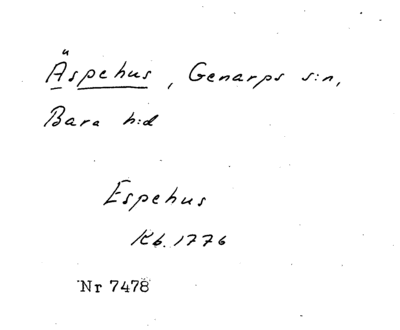 Äspehus, Genarps s:n,
Bara h:d
Espehus
Kb. 1776
Nr 7478